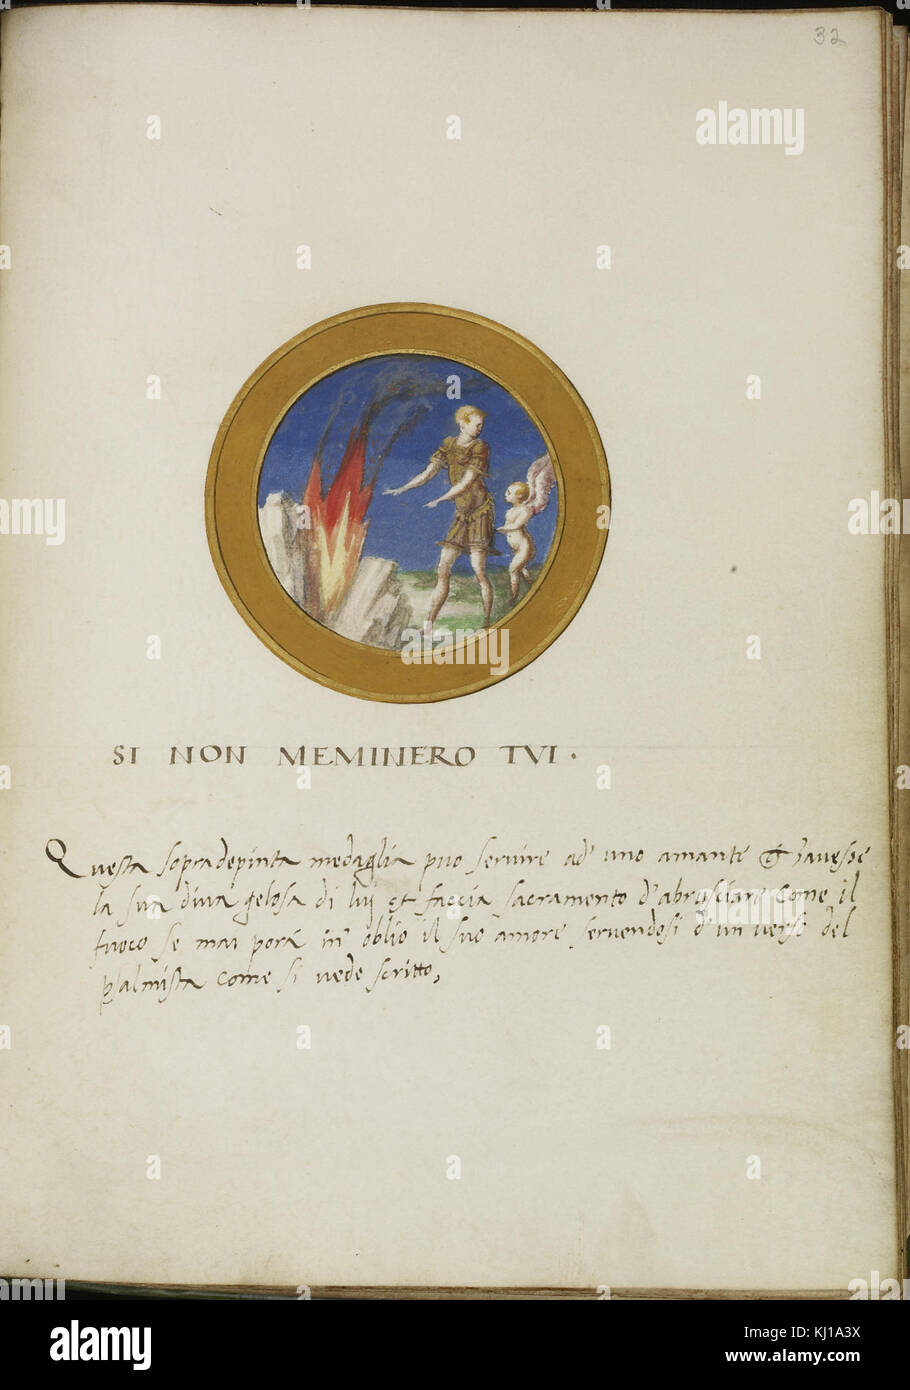 32
SI NON MEMINERO TVI .
Questa sopradepinta medaglia puo servire ad uno amante havesse
la sua diva gelosa di lui et faccia sacramento d'abrusciare come il
fuoco se mai porá in oblio il suo amore servendosi d'un verso del
psalmista come si vede scritto,
a alamy a
a a
alamy
a alamy
www.alamy.com
Image ID: KJ1A3X